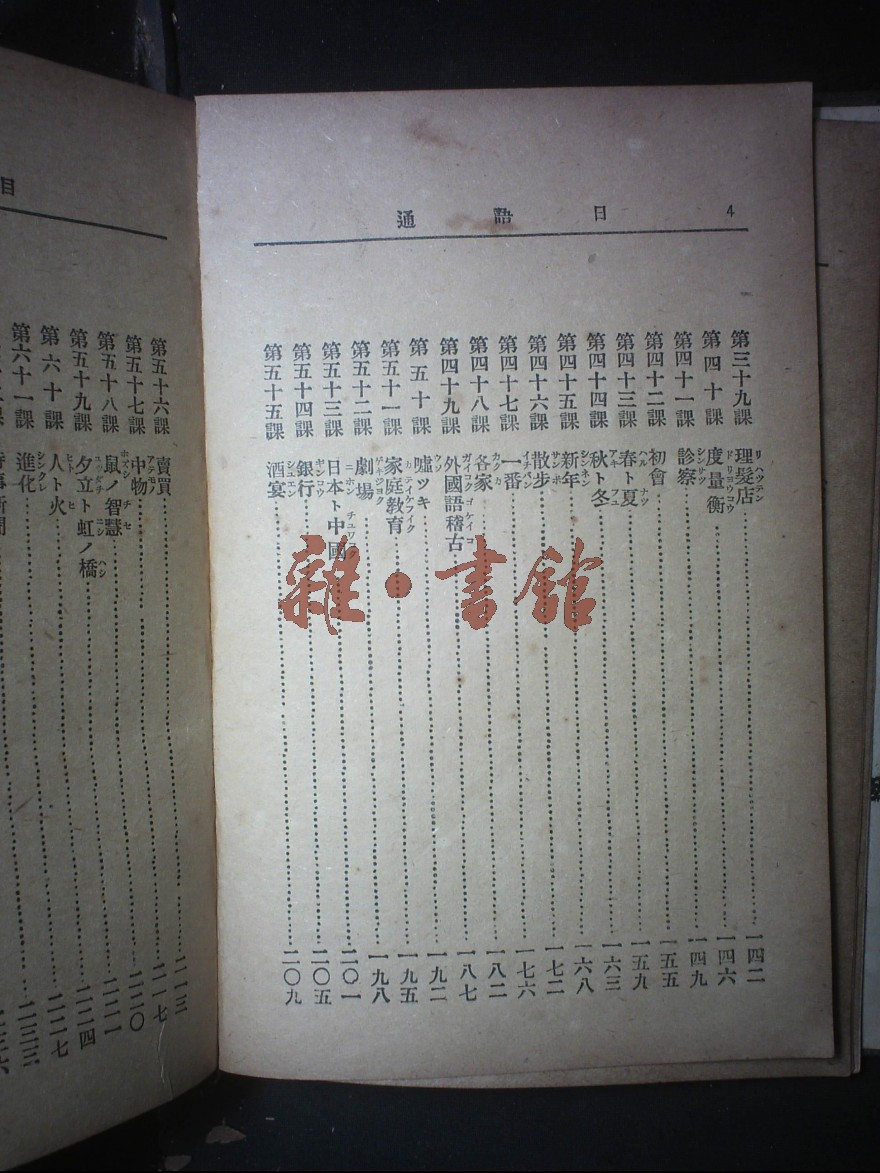 4 日語通
第三十九課 理髮店 一四二
リハテン
第四十課 度量衡 一四六
ドリヨウコウ
第四十一課 診察 一四九
シンサツ
第四十二課 初會 一五五
第四十三課 春ト夏 一五九
ハル ナツ
第四十四課 秋ト冬 一六三
アキ フユ
第四十五課 新年 一六八
シンネン
第四十六課 散步 一七二
サンポ
第四十七課 一番 一七六
イチバン
第四十八課 各家 一八二
カクカ
第四十九課 外國語稽古 一八七
ガイコクゴケイコ
第五十課 噓ツキ 一九二
ウソ
第五十一課 家庭教育 一九五
第五十二課 劇場 一九八
第五十三課 日本ト中國 二〇一
ニホン
第五十四課 銀行 二〇五
第五十五課 酒宴 二〇九
目
第五十六課 賣買 二一三
第五十七課 中物 二一七
第五十八課 鼠ノ智慧 二二〇
第五十九課 夕立ト虹ノ橋 二二一
第六十課 人ト火 二二四
ヒト ヒ
第六十一課 進化 二二七
雜·書館